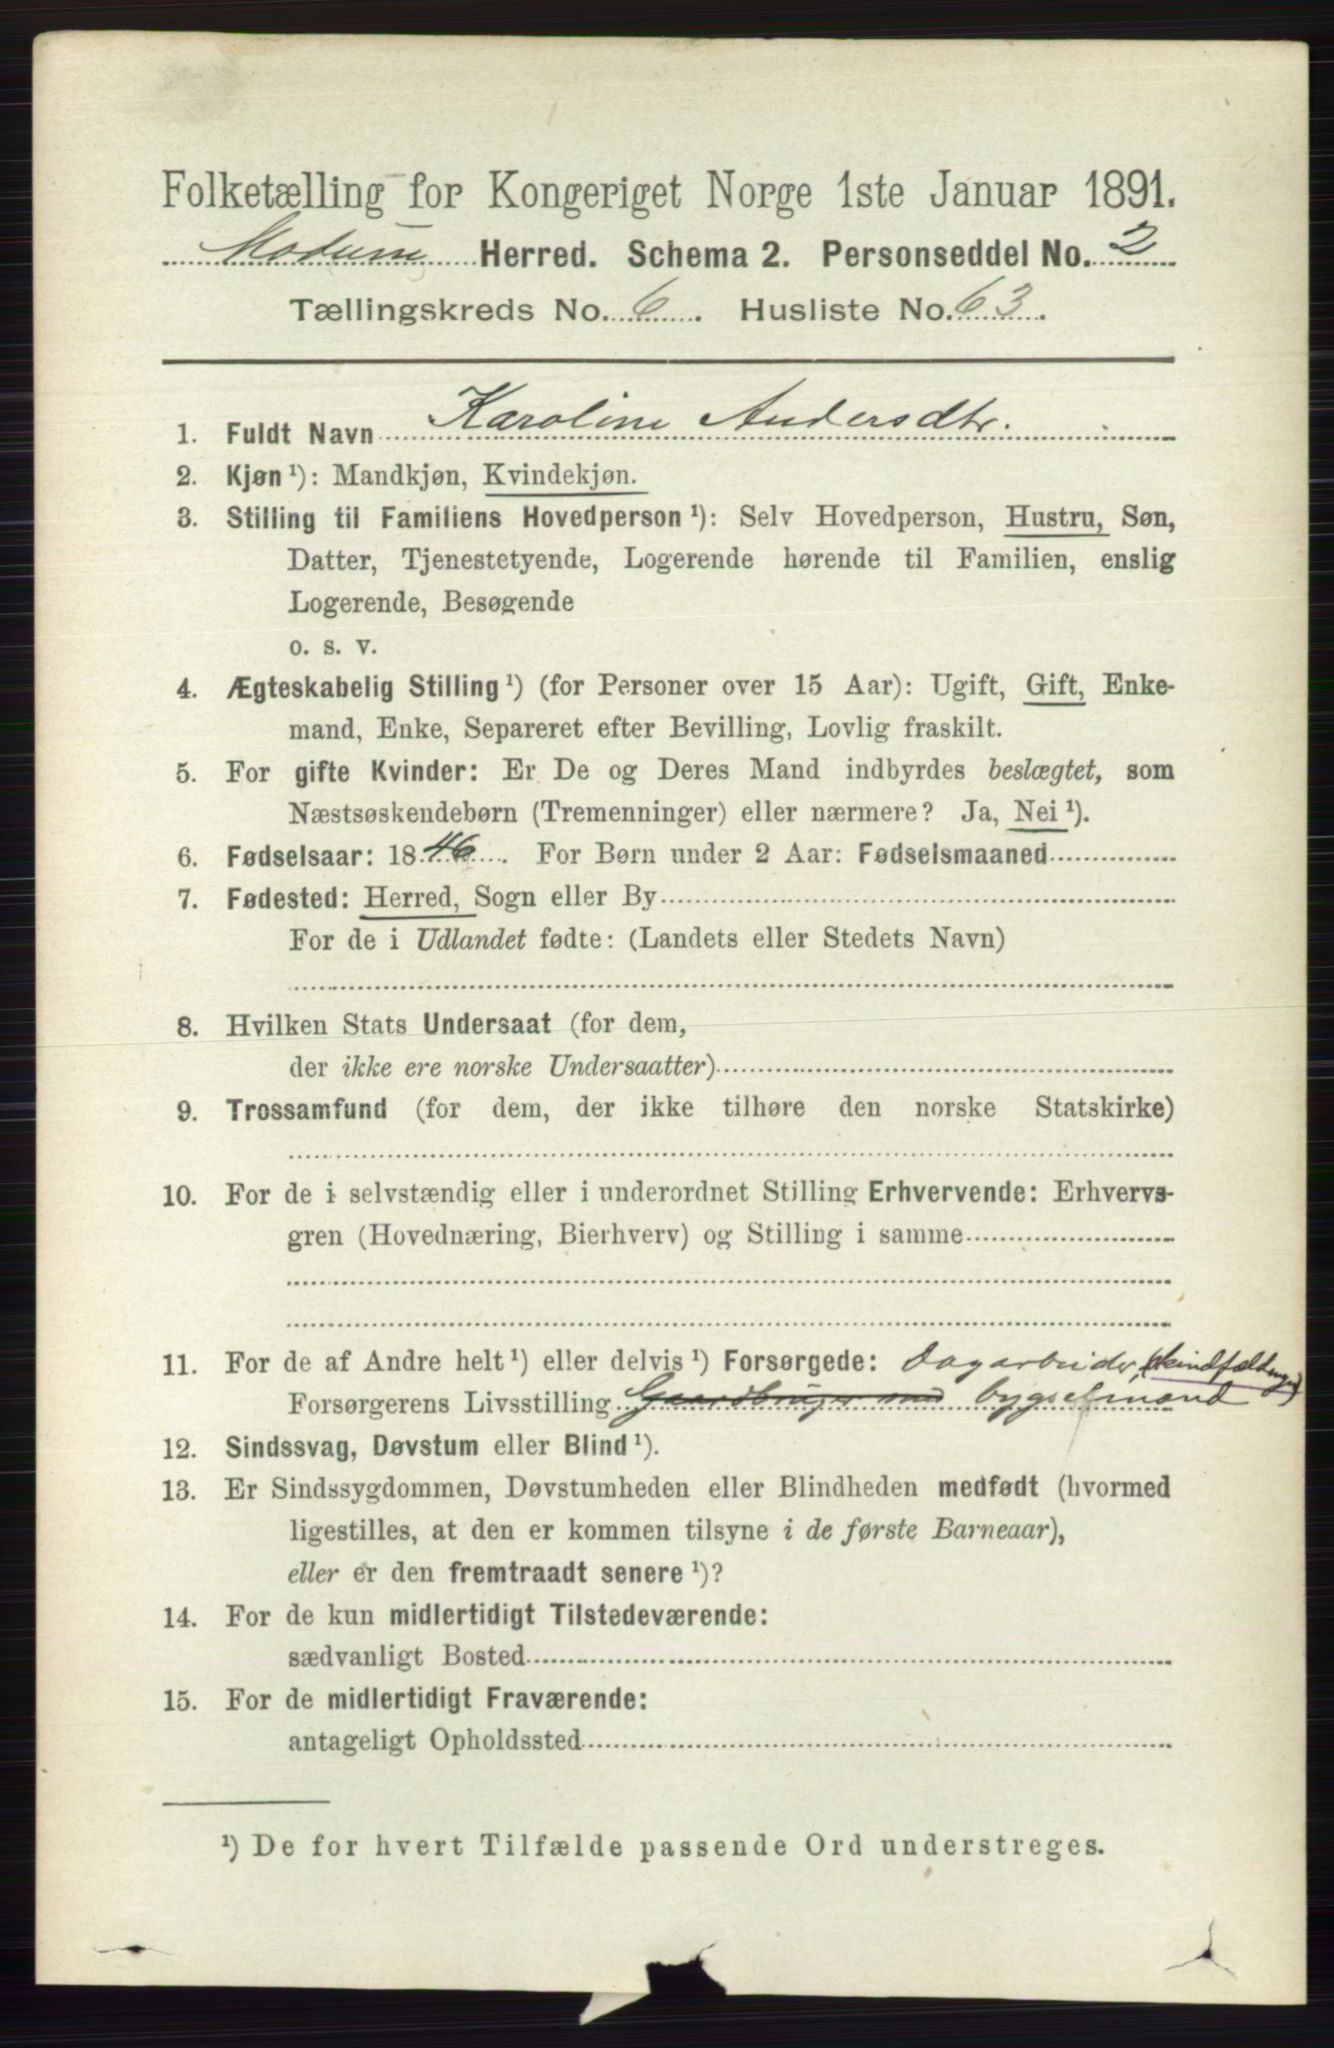 Folketælling for Kongeriget Norge 1ste Januar 1891.
Modum Herred. Schema 2. Personseddel No. 2
Tællingskreds No. 6. Husliste No. 63.
1. Fuldt Navn Karoline Andersdtr.
2. Kjøn ¹): Mandkjøn, Kvindekjøn.
3. Stilling til Familiens Hovedperson ¹): Selv Hovedperson, Hustru, Søn,
Datter, Tjenestetyende, Logerende hørende til Familien, enslig
Logerende, Besøgende
o. s. v.
4. Ægteskabelig Stilling ¹) (for Personer over 15 Aar): Ugift, Gift, Enke-
mand, Enke, Separeret efter Bevilling, Lovlig fraskilt.
5. For gifte Kvinder: Er De og Deres Mand indbyrdes beslægtet, som
Næstsøskendebørn (Tremenninger) eller nærmere? Ja, Nei ¹).
6. Fødselsaar: 1846. For Børn under 2 Aar: Fødselsmaaned
7. Fødested: Herred, Sogn eller By
For de i Udlandet fødte: (Landets eller Stedets Navn)
8. Hvilken Stats Undersaat (for dem,
der ikke ere norske Undersaatter)
9. Trossamfund (for dem, der ikke tilhøre den norske Statskirke)
10. For de i selvstændig eller i underordnet Stilling Erhvervende: Erhvervs-
gren (Hovednæring, Bierhverv) og Stilling i samme
11. For de af Andre helt ¹) eller delvis ¹) Forsørgede: Dagarbeider,
Forsørgerens Livsstilling Gaardbruger med bygselmand
12. Sindssvag, Døvstum eller Blind ¹).
13. Er Sindssygdommen, Døvstumheden eller Blindheden medfødt (hvormed
ligestilles, at den er kommen tilsyne i de første Barneaar),
eller er den fremtraadt senere ¹)?
14. For de kun midlertidigt Tilstedeværende:
sædvanligt Bosted
15. For de midlertidigt Fraværende:
antageligt Opholdssted
¹) De for hvert Tilfælde passende Ord understreges.